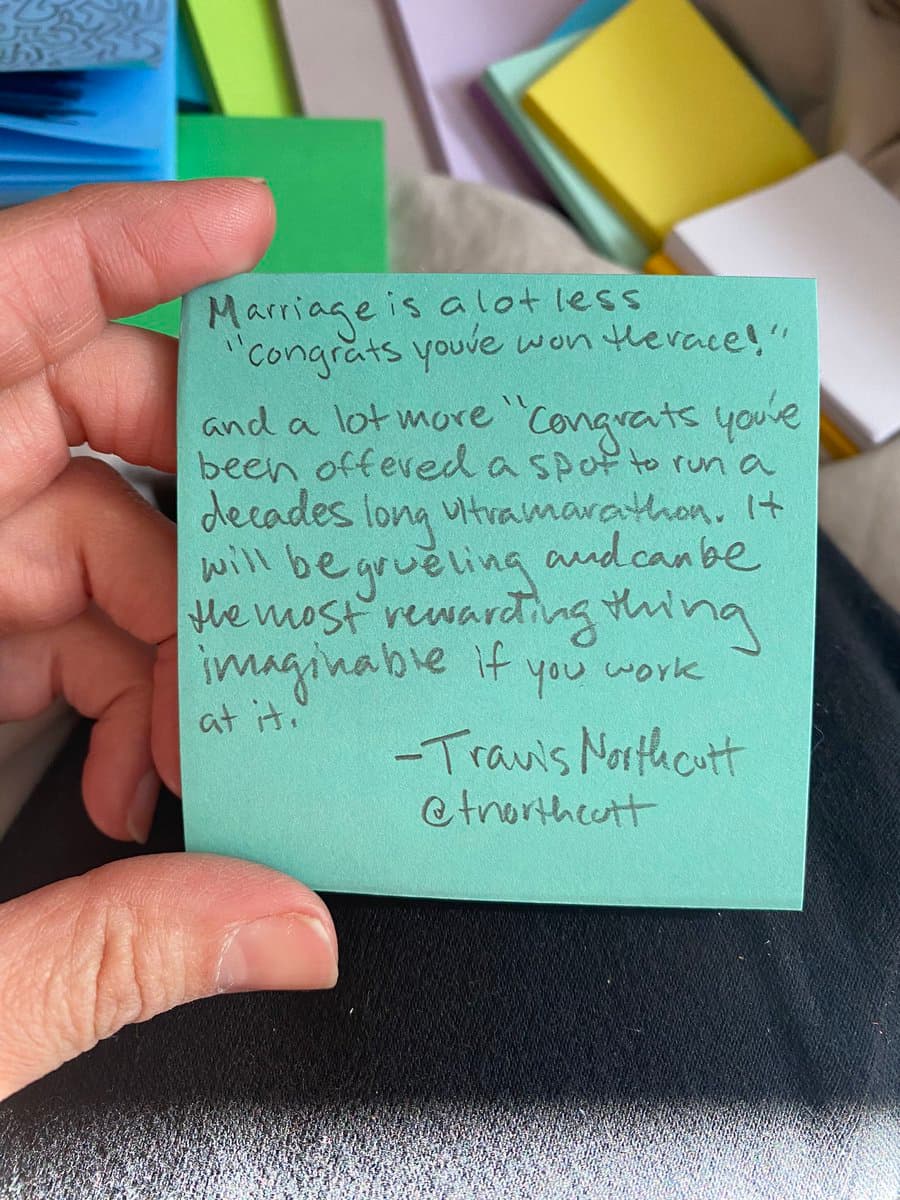 Marriage is a lot less
"congrats you've won the race!"
and a lot more "Congrats you've
been offered a spot to run a
decades long ultramarathon. It
will be grueling and can be
the most rewarding thing
imaginable if you work
at it.
-Travis Northcutt
@tnorthcutt